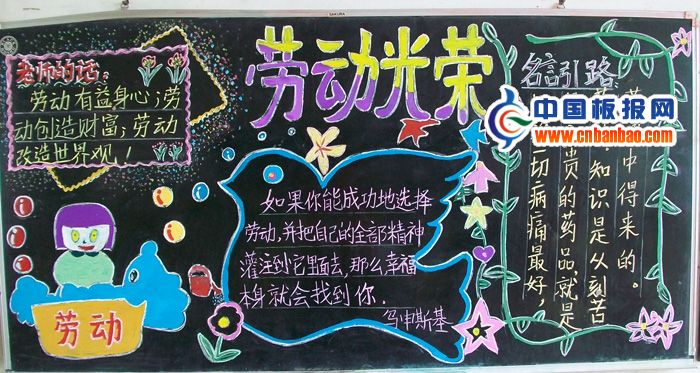 SAKURA
劳动光荣
老师的话:
劳动有益身心;劳
动创造财富;劳动
改造世界观!
如果你能成功地选择
劳动,并把自己的全部精神
灌注到它里面去,那么幸福
本身就会找到你.
乌申斯基
劳动
名言引路:
切病痛最好,
贵的药品,就是
知识是从刻苦
中得来的。
中国板报网
www.cnbanbao.com